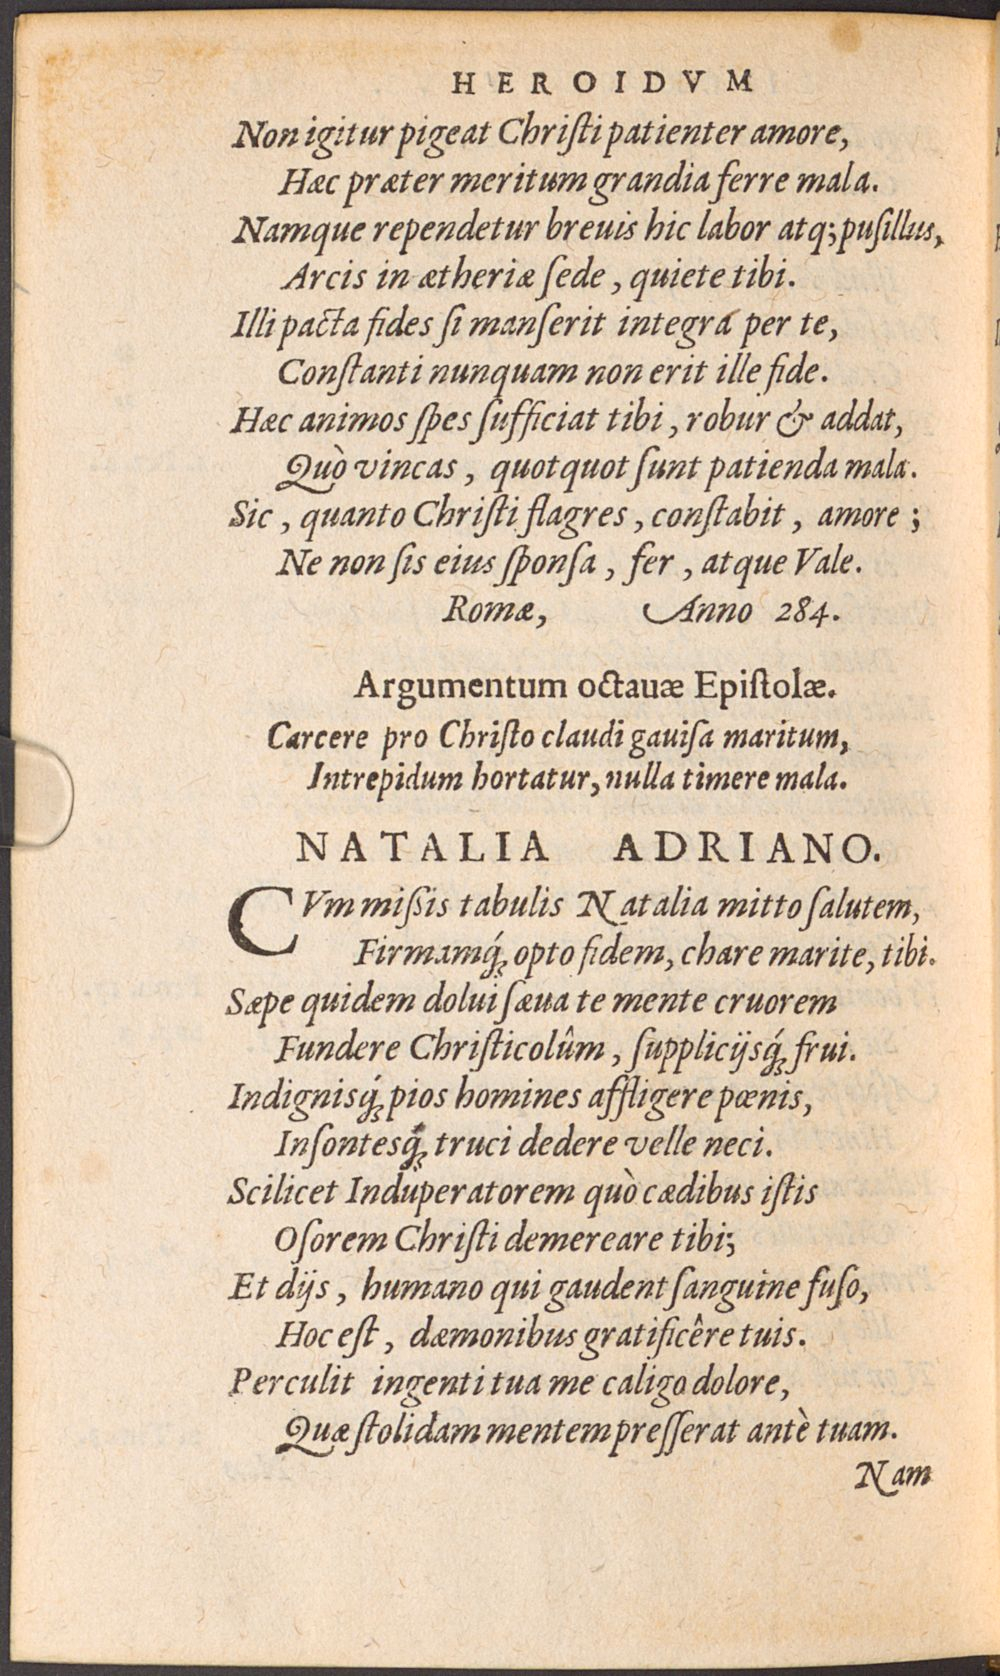 HEROIDVM
Non igitur pigeat Chriſti patienter amore,
Hæc præter meritum grandia ferre mala.
Namque rependetur breuis hic labor atq; puſillus,
Arcis in ætheriæ ſede, quiete tibi.
Illi pacta fides ſi manſerit integra per te,
Conſtanti nunquam non erit ille fide.
Hæc animos ſpes ſufficiat tibi, robur & addat,
Quò vincas, quotquot ſunt patienda mala.
Sic, quanto Chriſti flagres, conſtabit, amore;
Ne non ſis eius ſponſa, fer, atque Vale.
Romæ, Anno 284.
Argumentum octauæ Epiſtolæ.
Carcere pro Chriſto claudi gauiſa maritum,
Intrepidum hortatur, nulla timere mala.
NATALIA ADRIANO.
CVm miſsis tabulis Natalia mitto ſalutem,
Firmamq́; opto fidem, chare marite, tibi.
Sæpe quidem dolui ſæua te mente cruorem
Fundere Chriſticolûm, ſupplicijsq́; frui.
Indignisq́; pios homines affligere pœnis,
Inſontesq́; truci dedere velle neci.
Scilicet Induperatorem quò cædibus iſtis
Oſorem Chriſti demereare tibi;
Et dijs, humano qui gaudent ſanguine fuſo,
Hoc eſt, dæmonibus gratificêre tuis.
Perculit ingenti tua me caligo dolore,
Quæ ſtolidam mentem preſſerat antè tuam.
Nam